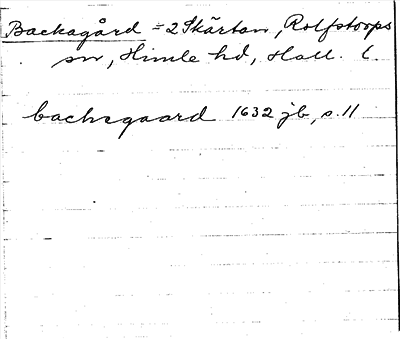 Backagård = 2 Skärtan, Rolfstorps
sn, Himle hd, Hall. l.
bachegaard 1632 jb, s. 11